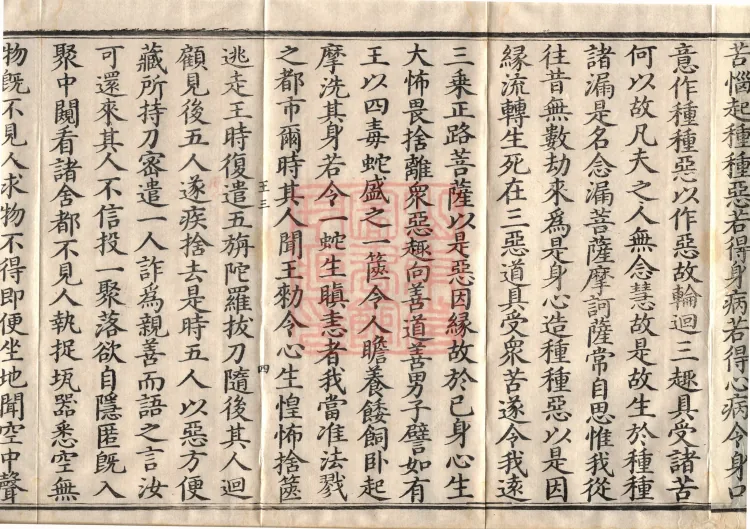 苦惱起種種惡若得身病若得心病令身口
意作種種惡以作惡故輪迴三趣具受諸苦
何以故凡夫之人無念慧故是故生於種種
諸漏是名念漏菩薩摩訶薩常自思惟我從
往昔無數劫來爲是身心造種種惡以是因
緣流轉生死在三惡道具受眾苦遂令我遠
三乘正路菩薩以是惡因緣故於己身心生
大怖畏捨離眾惡趣向善道善男子譬如有
王以四毒蛇盛之一篋令人瞻養餧飼臥起
摩洗其身若令一蛇生瞋恚者我當准法戮
之都市爾時其人聞王勑令心生惶怖捨篋
王三
四
逃走王時復遣五旃陀羅拔刀隨後其人迴
顧見後五人遂疾捨去是時五人以惡方便
藏所持刀密遣一人詐爲親善而語之言汝
可還來其人不信投一聚落欲自隱匿旣入
聚中闚看諸舍都不見人執捉坻器悉空無
物旣不見人求物不得即便坐地聞空中聲